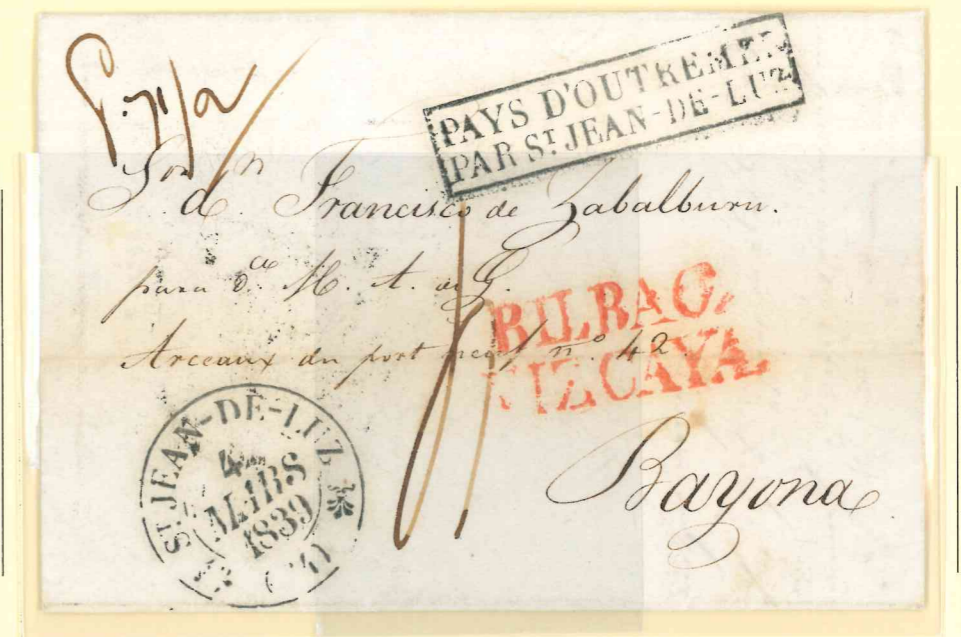 PAYS D'OUTREMER
PAR ST JEAN-DE-LUZ
Sor Dn
d. Francisco de Zabalburu.
para d.a M. A. de G.
Arceaux du port neuf n.º 42
BILBAO,
VIZCAYA.
Bayona
ST JEAN-DE-LUZ
4
MARS
1839
(64)